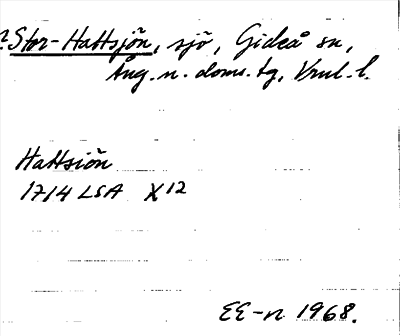 ? Stor-Hattsjön, sjö, Gideå sn,
Ång. n. doms. tg, Vnrl. l.
Hattsiön
1714 LSA X12
EE-n 1968.